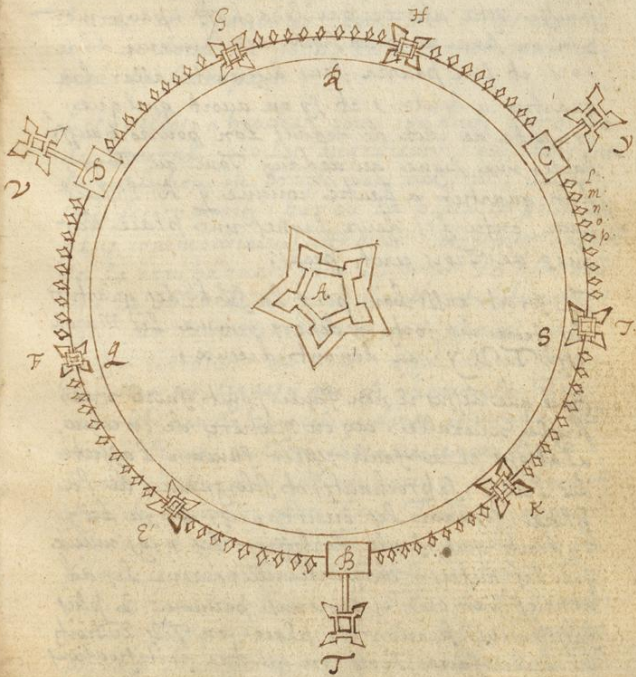 G
H
R
D
C
l
m
n
o
p
A
S
F
Q
K
E
B